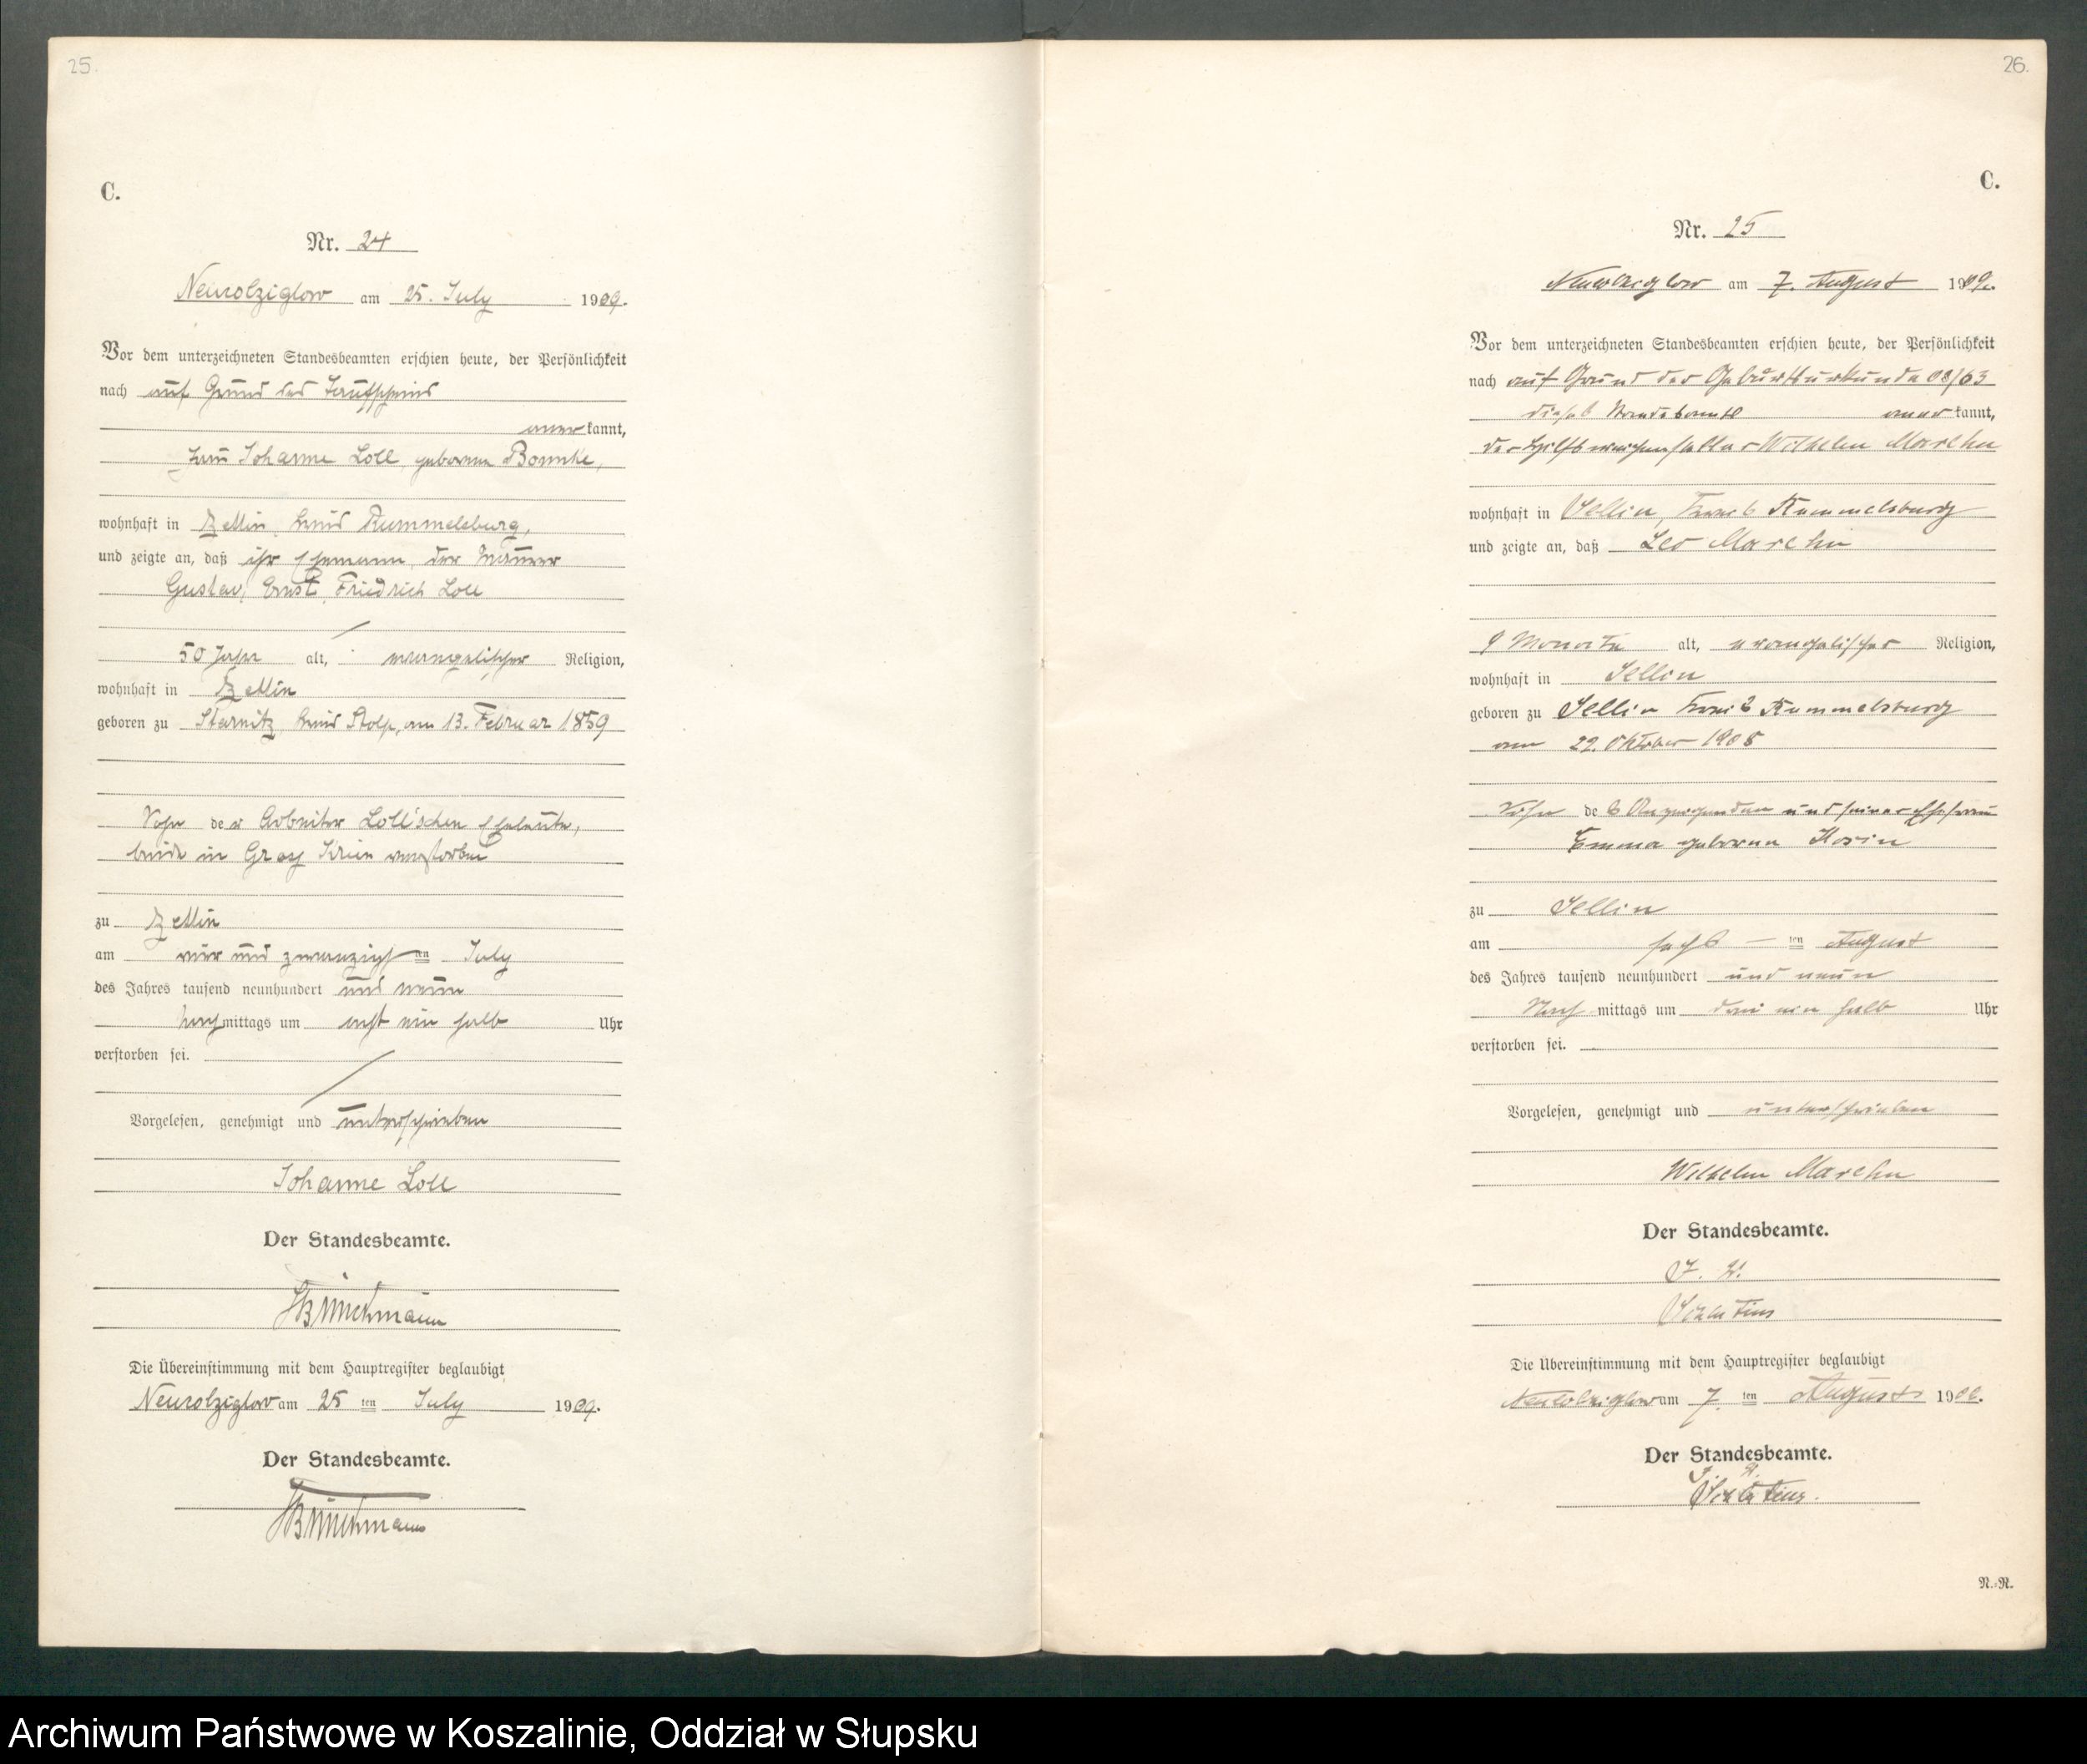 25.
C.
Nr. 24
Neukolziglow am 25. July 1909.
Vor dem unterzeichneten Standesbeamten erschien heute, der Persönlichkeit
nach auf Grund des Taufscheins
anerkannt,
Frau Johanne Loll, geborene
wohnhaft in Zettin, Kreis Rummelsburg,
und zeigte an, daß ihr Ehemann, der Maurer
Gustav, Ernst, Friedrich Loll
50 Jahr alt, evangelischer Religion,
wohnhaft in Zettin
geboren zu Starnitz, Kreis Stolp, am 13. Februar 1859
Sohn der Arbeiter Loll'schen Eheleute,
beide in Groß Krien verstorben
zu Zettin
am vier und zwanzigsten July
des Jahres tausend neunhundert und neun
Nachmittags um acht ein halb Uhr
verstorben sei.
Vorgelesen, genehmigt und unterschrieben
Johanne Loll
Der Standesbeamte.
Die Übereinstimmung mit dem Hauptregister beglaubigt
Neukolziglow am 25 ten July 1909.
Der Standesbeamte.
26.
C.
Nr. 25
Neukolziglow am 7. August 1909.
Vor dem unterzeichneten Standesbeamten erschien heute, der Persönlichkeit
nach auf Grund der Geburtsurkunde 08/63
dieses Standesamts anerkannt,
der Hilfsweichensteller Wilhelm Marchn
wohnhaft in Sellin, Kreis Rummelsburg
und zeigte an, daß Leo Marchn
9 Monate alt, evangelischer Religion,
wohnhaft in Sellin
geboren zu Sellin Kreis Rummelsburg
am 22. Oktober 1908
Sohn des Anzeigenden und seiner Ehefrau
Emma geborene
zu Sellin
am sechs – ten August
des Jahres tausend neunhundert und neun
Nachmittags um drei ein halb Uhr
verstorben sei.
Vorgelesen, genehmigt und unterschrieben
Wilhelm Marchn
Der Standesbeamte.
J. V.
Die Übereinstimmung mit dem Hauptregister beglaubigt
Neukolziglow am 7. ten August 190
Der Standesbeamte.
J. V.
N.-R.
Archiwum Państwowe w Koszalinie, Oddział w Słupsku